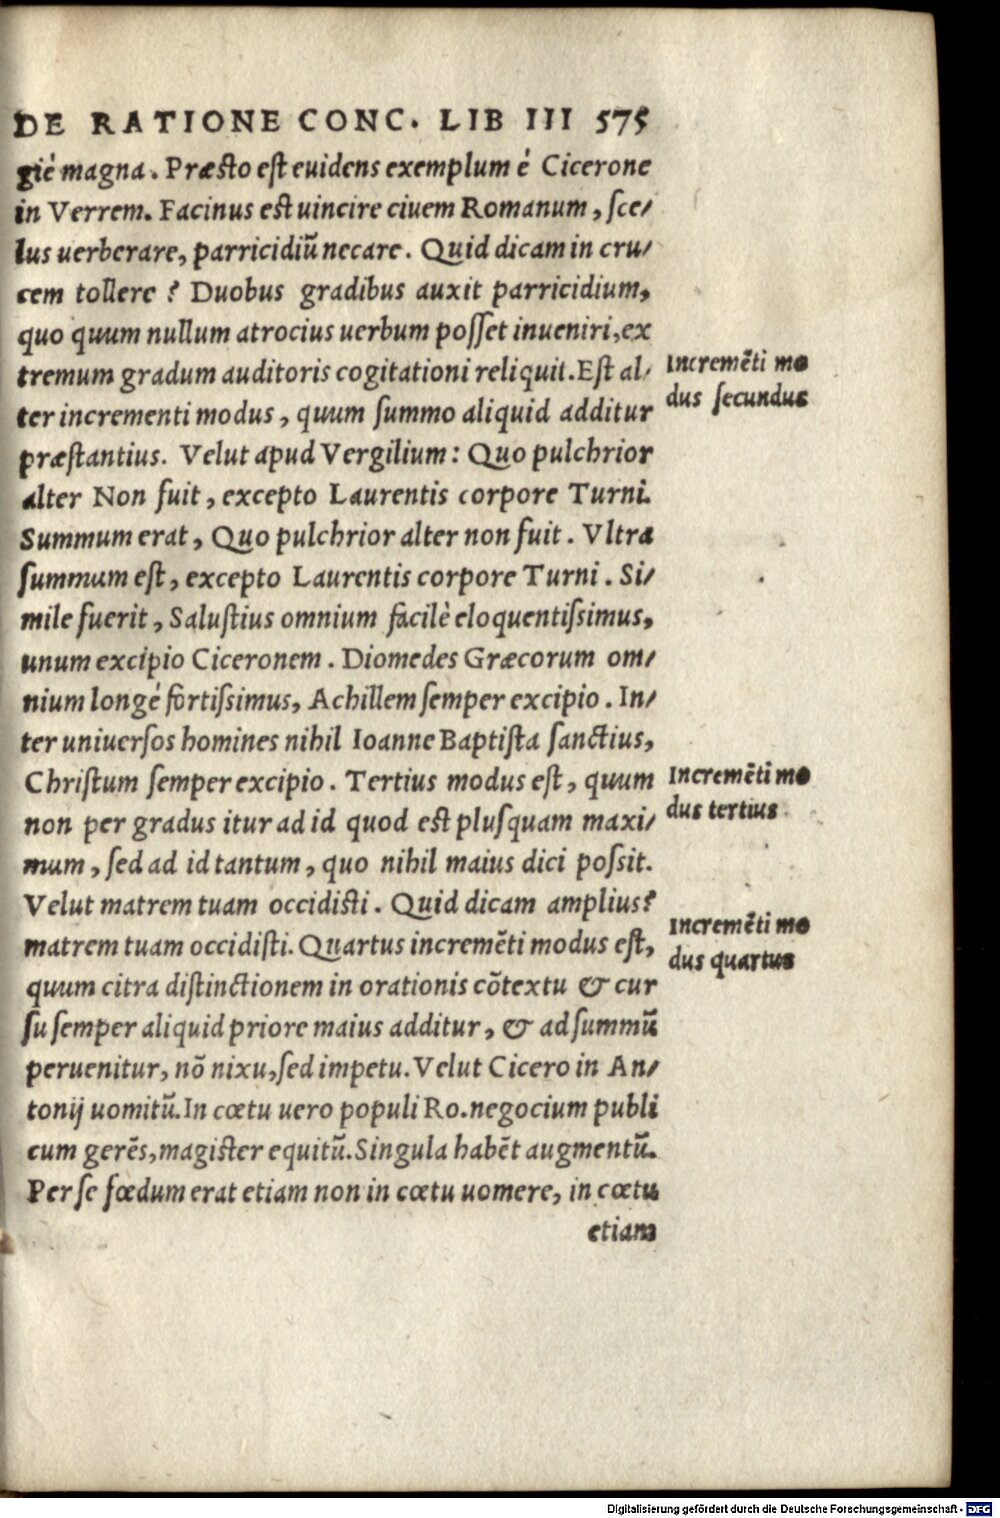 DE RATIONE CONC. LIB III 575
giè magna. Præsto est euidens exemplum è Cicerone
in Verrem. Facinus est uincire ciuem Romanum, sce/
lus uerberare, parricidiũ necare. Quid dicam in cru/
cem tollere? Duobus gradibus auxit parricidium,
quo quum nullum atrocius uerbum posset inueniri, ex
tremum gradum auditoris cogitationi reliquit. Est al/
ter incrementi modus, quum summo aliquid additur
præstantius. Velut apud Vergilium: Quo pulchrior
alter Non fuit, excepto Laurentis corpore Turni.
Summum erat, Quo pulchrior alter non fuit. Vltra
summum est, excepto Laurentis corpore Turni. Si/
mile fuerit, Salustius omnium facilè eloquentissimus,
unum excipio Ciceronem. Diomedes Græcorum om/
nium longè fortissimus, Achillem semper excipio. In/
ter uniuersos homines nihil Ioanne Baptista sanctius,
Christum semper excipio. Tertius modus est, quum
non per gradus itur ad id quod est plusquam maxi/
mum, sed ad id tantum, quo nihil maius dici possit.
Velut matrem tuam occidisti. Quid dicam amplius?
matrem tuam occidisti. Quartus incremẽti modus est,
quum citra distinctionem in orationis cõtextu & cur
su semper aliquid priore maius additur, & ad summũ
peruenitur, nõ nixu, sed impetu. Velut Cicero in An/
tonij uomitũ. In cœtu uero populi Ro. negocium publi
cum gerẽs, magister equitũ. Singula habẽt augmentũ.
Per se fœdum erat etiam non in cœtu uomere, in cœtu
etiam
Incremẽti mo
dus secundus
Incremẽti mo
dus tertius
Incremẽti mo
dus quartus
Digitalisierung gefördert durch die Deutsche Forschungsgemeinschaft - DFG